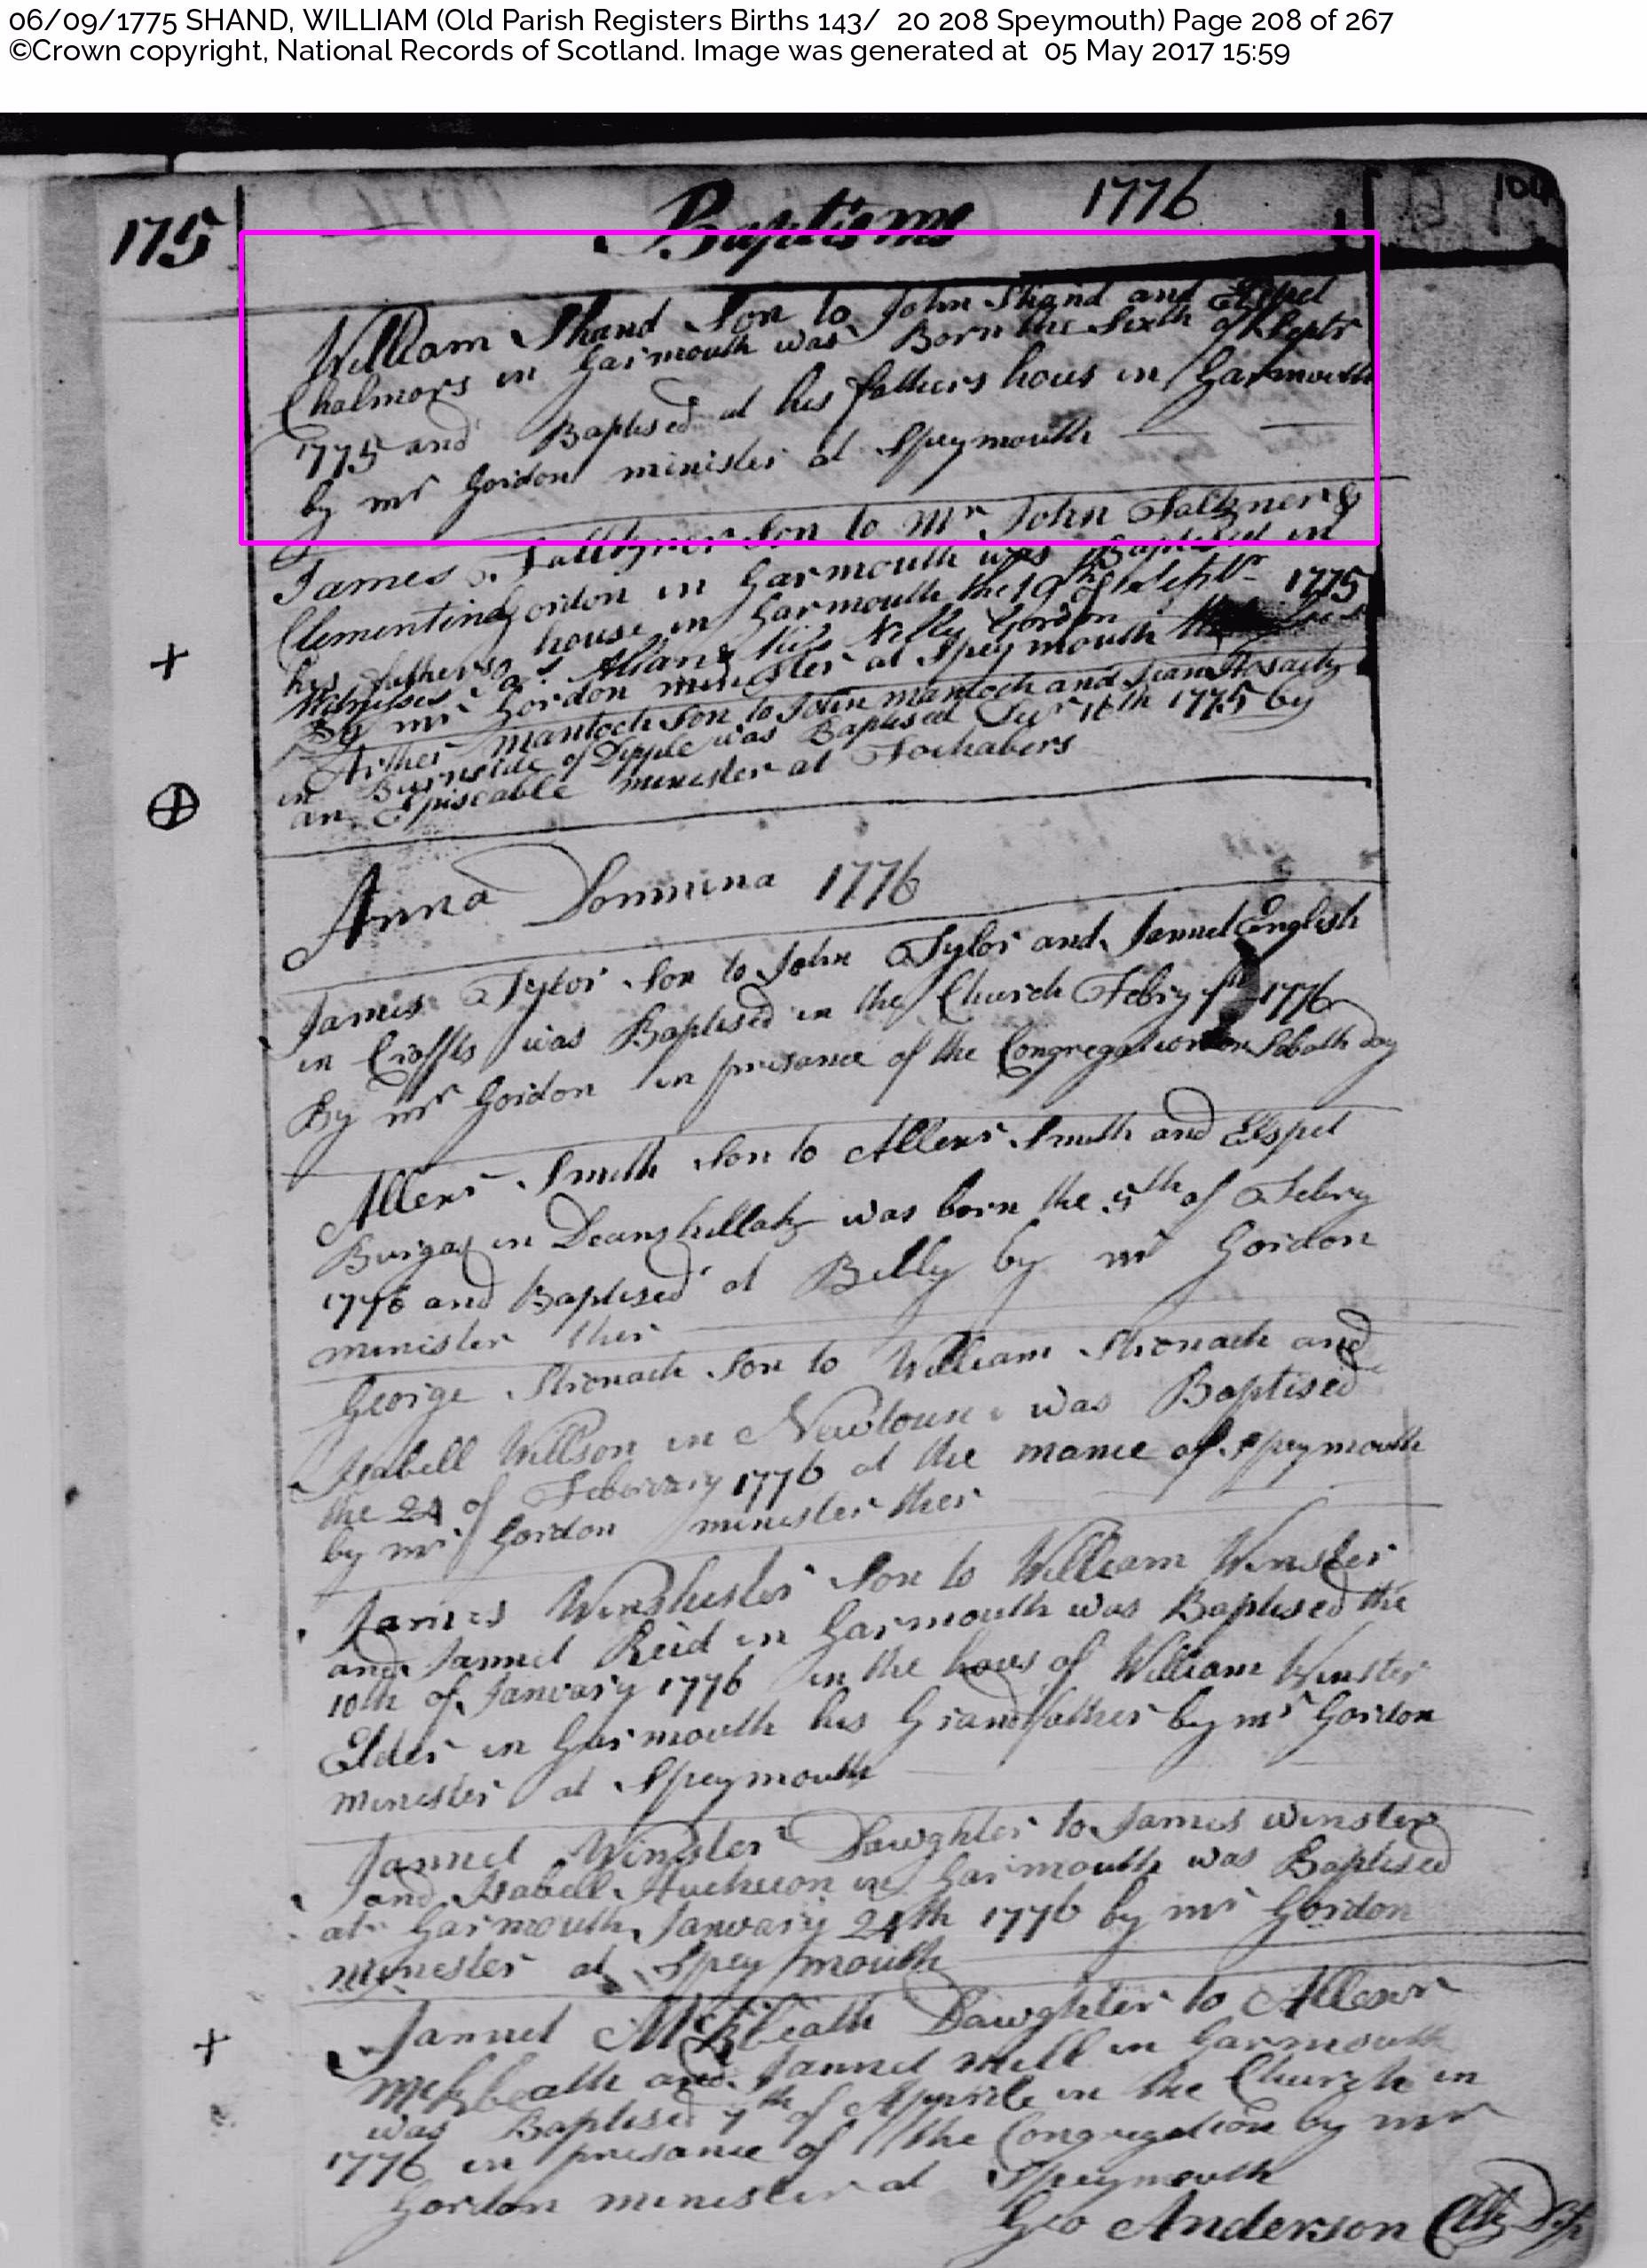 06/09/1775 SHAND, WILLIAM (Old Parish Registers Births 143/ 20 208 Speymouth) Page 208 of 267
©Crown copyright, National Records of Scotland. Image was generated at 05 May 2017 15:59
175
Baptisms 1776
William Shand Son to John Shand and Elspet
Chalmors in Garmouth was Born the Sixth of Septr
1775 and Baptised at his fathers hous in Garmouth
by mr Gordon minister at Speymouth
James Falkner Son to Mr John Falkner &
Clementina Gordon in Garmouth was Baptised in
his fathers house in Garmouth the 19th of Septbr 1775
Witnesses Nelly Gordon
By mr Gordon minister at Speymouth
Arther Mantoch Son to John mantoch and Jean
in Burnside of Dipple was Baptised 16th 1775 by
an Episcable minister at Fochabers
Anna Dommina 1776
James Tylor Son to John Tylor and Jannet English
in Croffts was Baptised in the Church Febry 1776
By mr Gordon in presance of the Congregation on Sabath day
Allexr Smith Son to Allexr Smith and Elspet
in was born the 5th of Febry
1776 and Baptised at Belly by mr Gordon
minister ther
George Stronach Son to William Stronach and
Isabell Willson in Newtoun was Baptised
the 24 of February 1776 at the manee of Speymouth
by mr Gordon minister ther
James Winshester Son to William Winster
and Jannet Reid in Garmouth was Baptised the
10th of January 1776 in the hous of William Winster
Elder in Garmouth his Grandfather by mr Gordon
minister at Speymouth
Jannet Winster Dawghter to James winster
and Isabell Hucheon in Garmouth was Baptised
at Garmouth January 24th 1776 by mr Gordon
minester at Spey mouth
Jannet McKbeath Dawghter to Allexr
McKbeath and Jannet mill in Garmouth
was Baptised 7th of Apprile in the Church in
1776 in presance of the Congregation by mr
Gordon minester at Speymouth
Geo Anderson